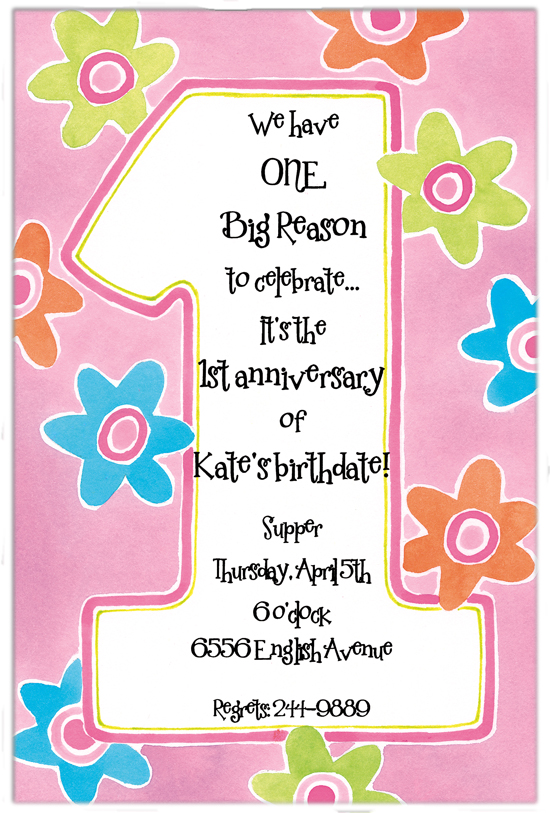 We have
ONE
Big Reason
to celebrate...
it's the
1st anniversary
of
Kate's birthdate!
Supper
Thursday, April 5th
6 o'clock
6556 English Avenue
Regrets: 244-9889